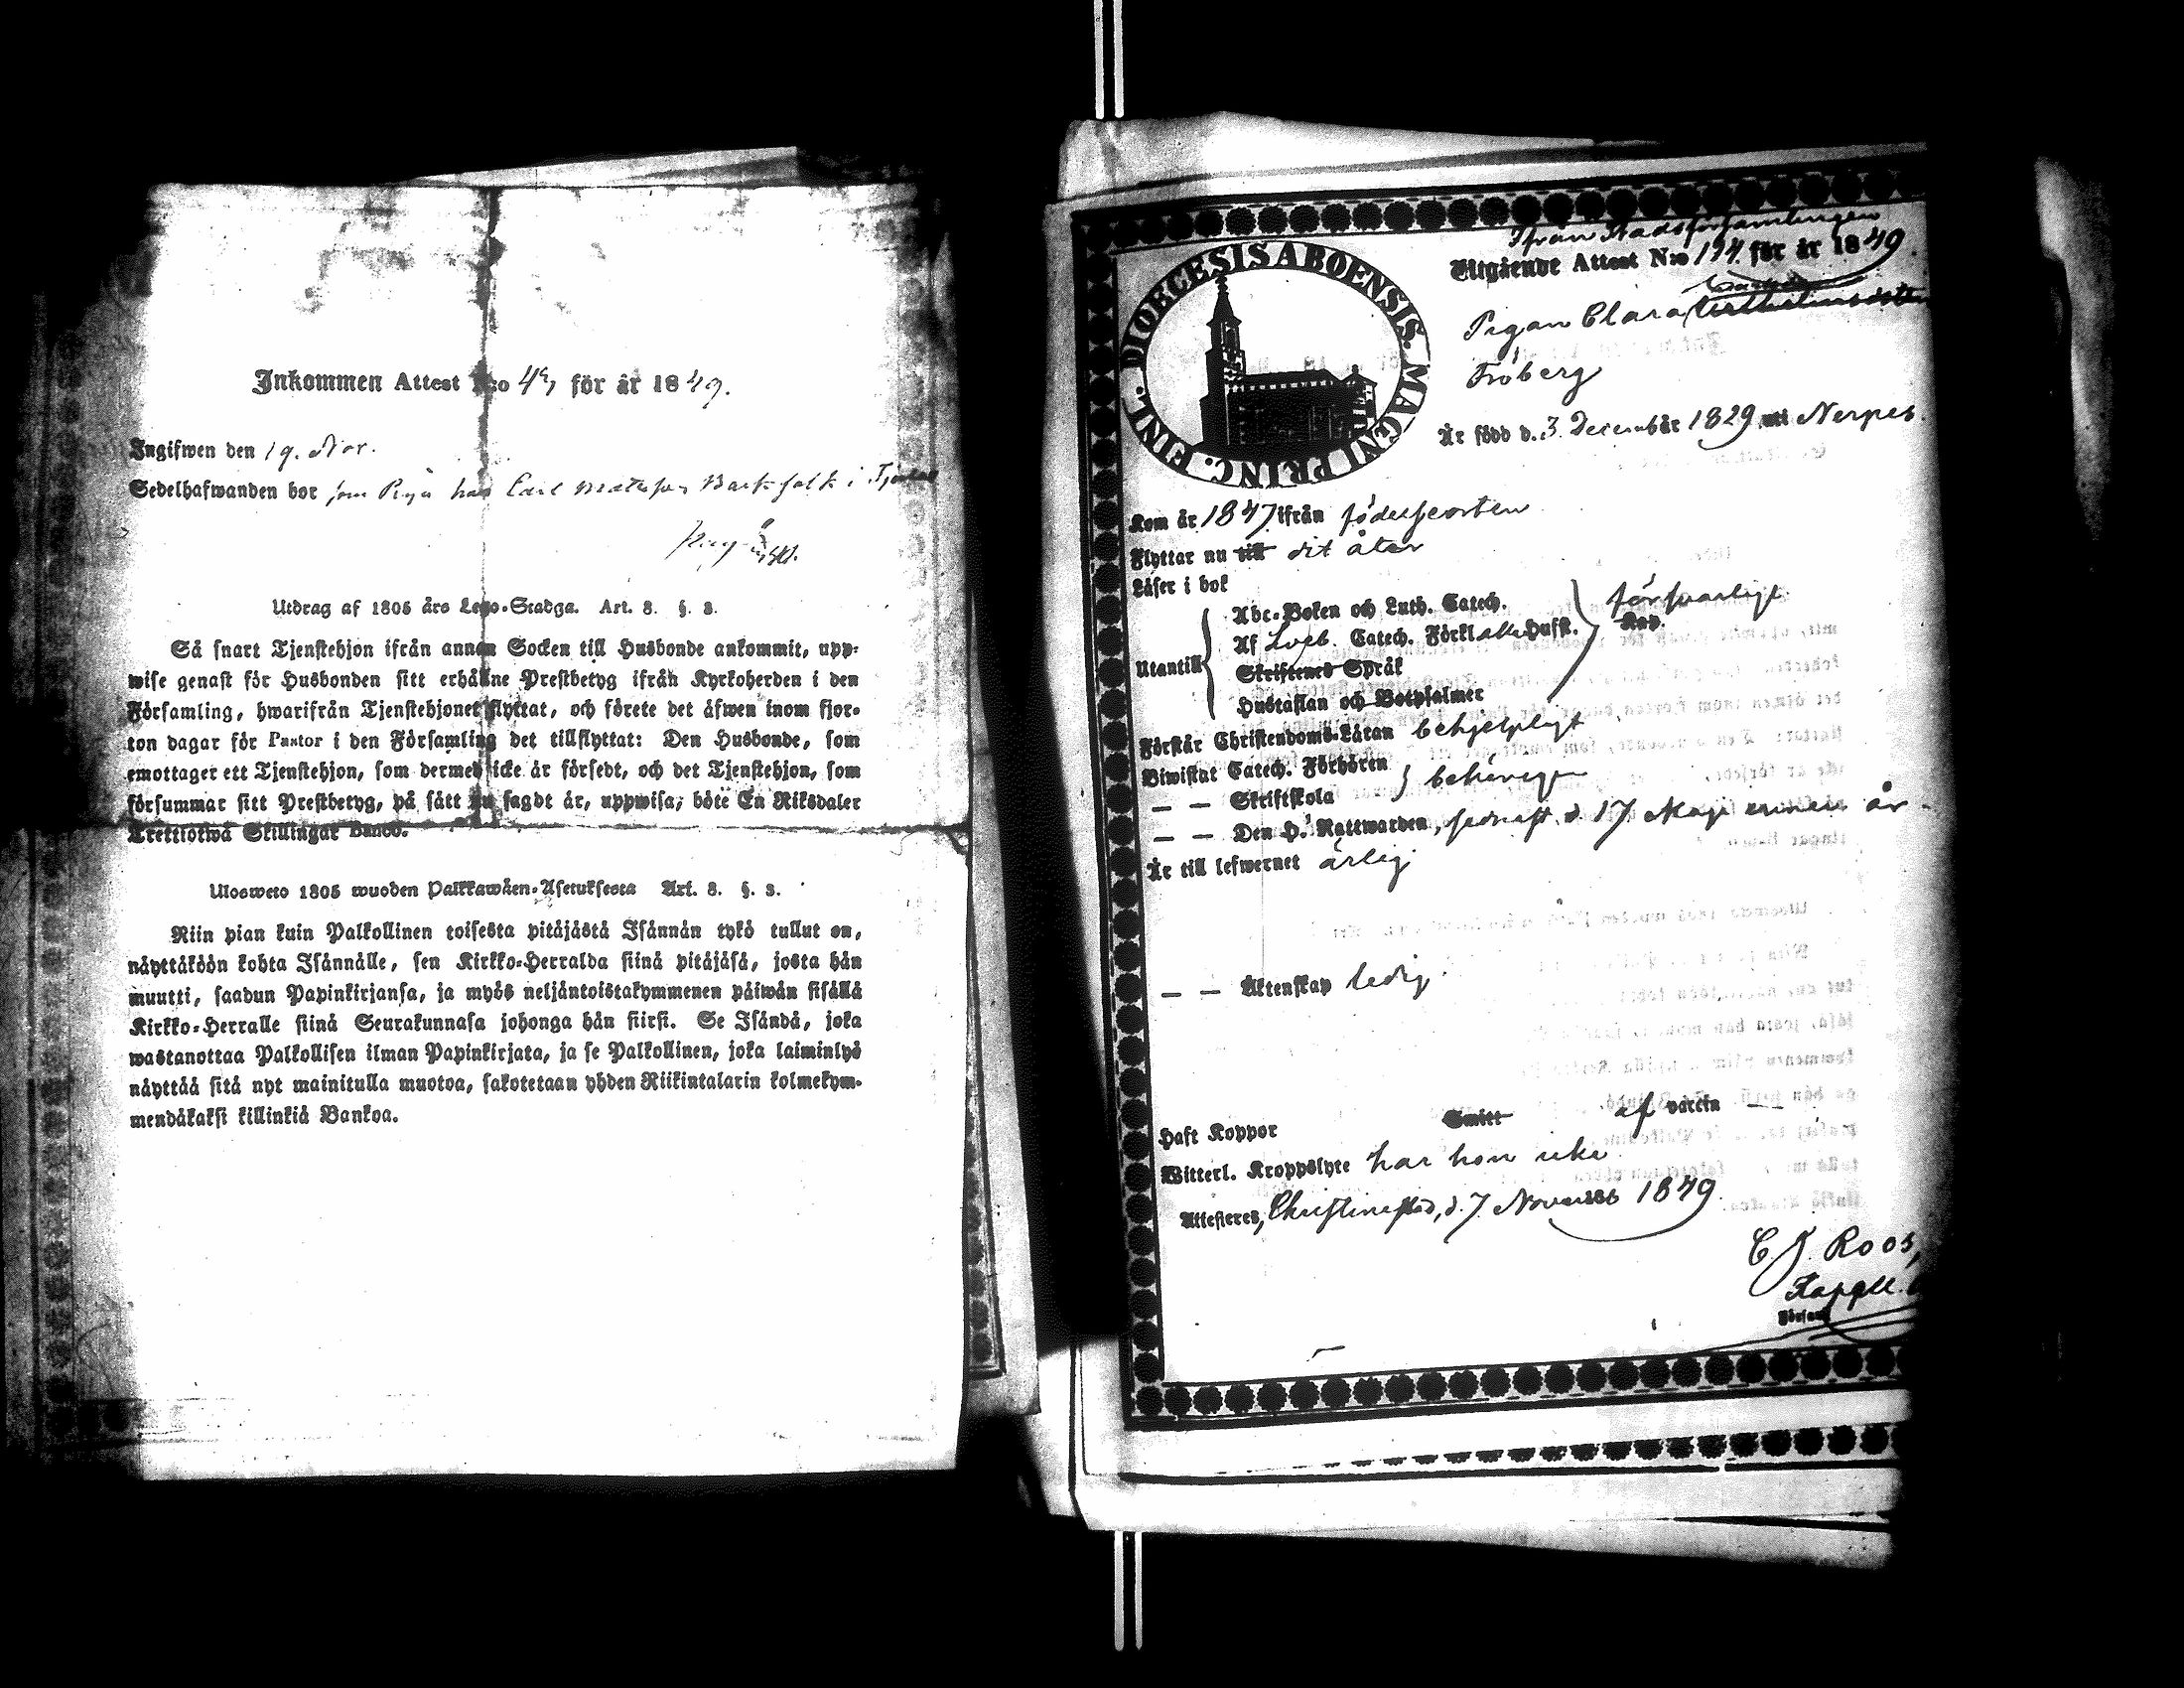 Inkommen Attest N:o för år 1849.
Ingifwen den 19. Nov.
Sedelhafwanden bor som Piga hos Carl Mattsson i
Utdrag af 1805 års Lego-Stadga. Art. 8. §. 3.
Så snart Tjenstehjon ifrån annan Socken till Husbonde ankommit, upp-
wise genast för Husbonden sitt erhållne Prestbetyg ifrån Kyrkoherden i den
Församling, hwarifrån Tjenstehjonet flyttat, och förete det äfwen inom fjor-
ton dagar för Pastor i den Församling det tillflyttat: Den Husbonde, som
emottager ett Tjenstehjon, som dermed icke är försedt, och det Tjenstehjon, som
försummar sitt Prestbetyg, på sätt nu sagdt är, uppwisa, böte En Riksdaler
Trettiotwå Skillingar Banco.
Ulosweto 1805 wuoden Palkkawäen-Asetuksesta Art. 8. §. 3.
Niin pian kuin Palkollinen toisesta pitäjästä Isännän tykö tullut on,
näyttäköön kohta Isännälle, sen Kirkko-Herralda siinä pitäjäsä, josta hän
muutti, saadun Papinkirjansa, ja myös neljäntoistakymmenen päiwän sisällä
Kirkko-Herralle siinä Seurakunnasa johonga hän siirsi. Se Isändä, joka
wastanottaa Palkollisen ilman Papinkirjata, ja se Palkollinen, joka laiminlyö
näyttää sitä nyt mainitulla muotoa, sakotetaan yhden Riikintalarin kolmekym-
mendäkaksi killinkiä Bankoa.
DIOECESIS ABOENSIS. MAGNI PRINC. FINL.
Ifrån Stadsförsamlingen
Utgående Attest N:o 194 för år 1849.
Pigan Clara
Fröberg
Är född d. 3 December 1829 uti Nerpes.
Kom år 1847 ifrån födelseorten
Flyttar nu till dit åter
Läser i bok
Utantill
Abc-Boken och Luth. Catech.
Af Sveb. Catech. Förkl. Hust.
försvarligt
Skriftenes Språk
Hustaflan och Botpsalmer
Förstår Christendoms-Läran behjelpligt
Biwistat Catech. Förhören
— — Skriftskola
behörigen
— — Den H. Nattwarden, sednast d. 17 Maji år
Är till lefwernet ärlig
— — Äktenskap ledig
Haft Koppor Smitt af vaccin —
Witterl. Kroppslyte har hon icke
Attesteres, Christinestad, d. 7 November 1849
C J Roos,
Kapell.